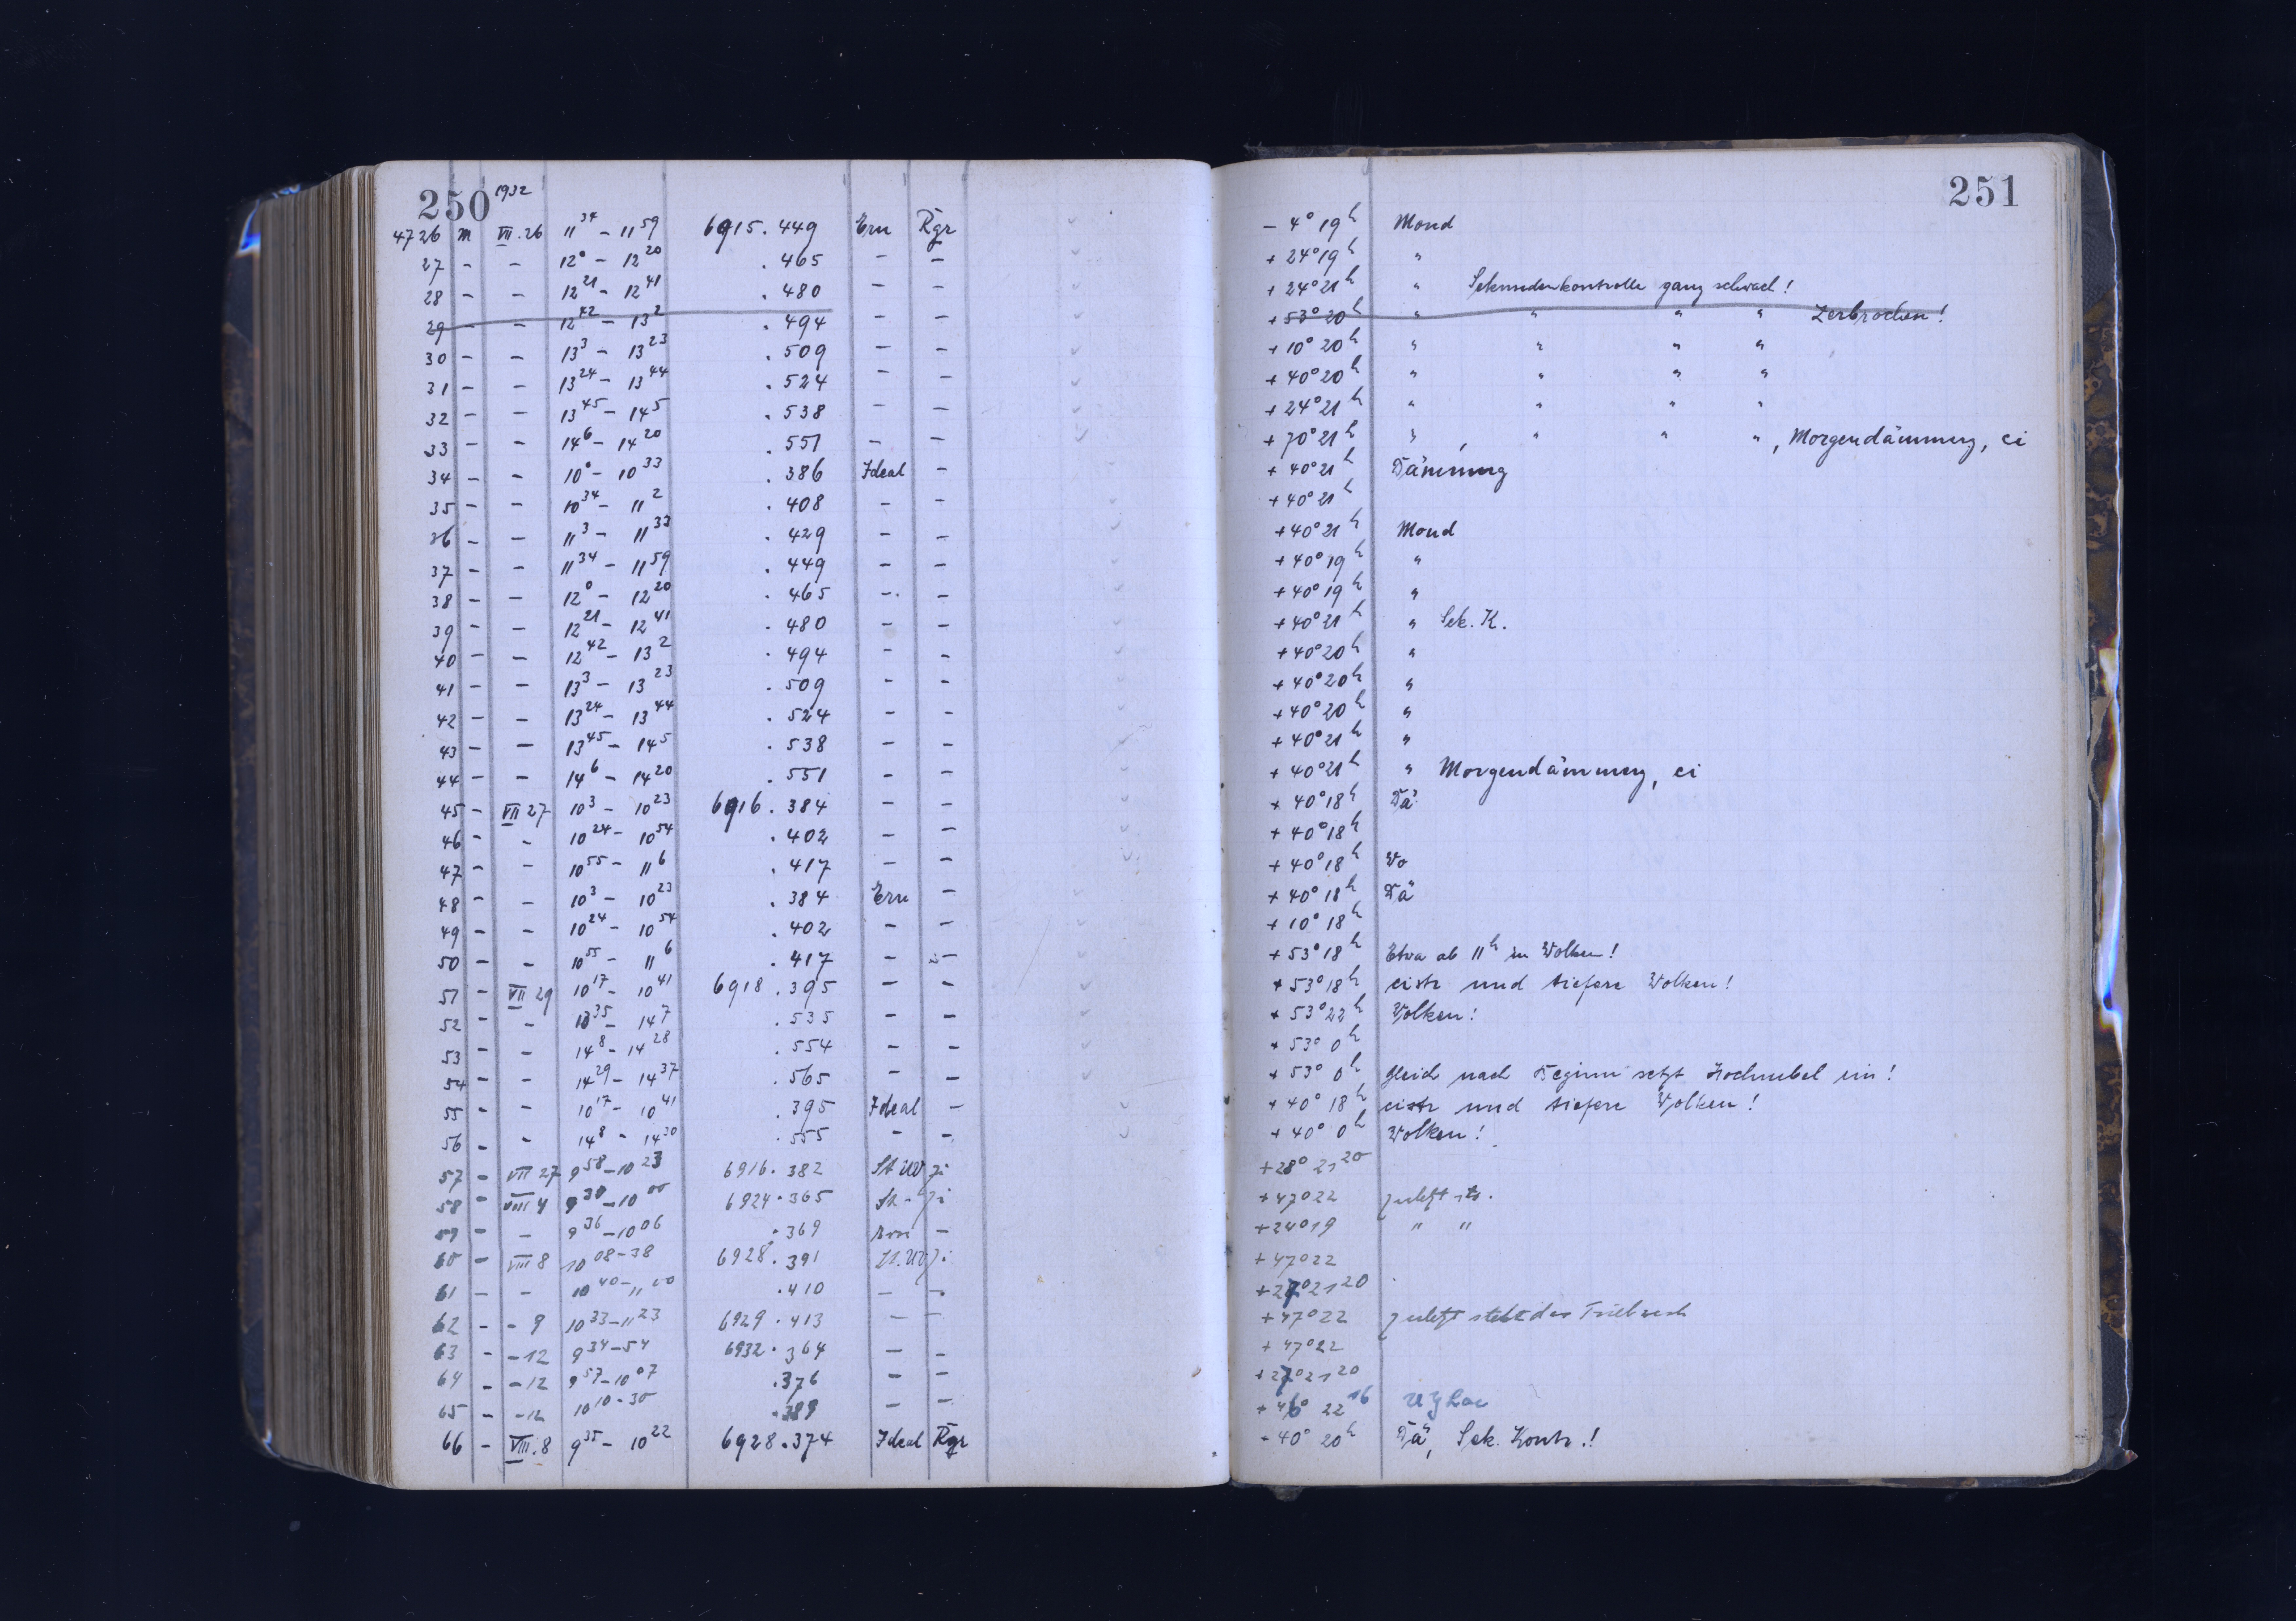 250 1932
4726 m VII.26 11 34 - 11 59 6915.449 Ern Rgr
27 - - 12 0 - 12 20 .465 - -
28 - - 12 21 - 12 41 .480 - -
29 - - 12 42 - 13 2 .494 - -
30 - - 13 3 - 13 23 .509 - -
31 - - 13 24 - 13 44 .524 - -
32 - - 13 45 - 14 5 .538 - -
33 - - 14 6 - 14 20 .551 - -
34 - - 10 0 - 10 33 .386 Ideal -
35 - - 10 34 - 11 2 .408 - -
36 - - 11 3 - 11 33 .429 - -
37 - - 11 34 - 11 59 .449 - -
38 - - 12 0 - 12 20 .465 - -
39 - - 12 21 - 12 41 .480 - -
40 - - 12 42 - 13 2 .494 - -
41 - - 13 3 - 13 23 .509 - -
42 - - 13 24 - 13 44 .524 - -
43 - - 13 45 - 14 5 .538 - -
44 - - 14 6 - 14 20 .551 - -
45 - VII 27 10 3 - 10 23 6916.384 - -
46 - - 10 24 - 10 54 .402 - -
47 - - 10 55 - 11 6 .417 - -
48 - - 10 3 - 10 23 .384 Ern -
49 - - 10 24 - 10 54 .402 - -
50 - - 10 55 - 11 6 .417 - -
51 - VII 29 10 17 - 10 41 6918.395 - -
52 - - 13 35 - 14 7 .535 - -
53 - - 14 8 - 14 28 .554 - -
54 - - 14 29 - 14 37 .565 - -
55 - - 10 17 - 10 41 .395 Ideal -
56 - - 14 8 - 14 30 .555 - -
57 - VII 27 9 58 - 10 23 6916.382
58 - VIII 4 9 30 - 10 00 6924.365
59 - - 9 36 - 10 06 .369 -
60 - VIII 8 10 08 - 38 6928.391
61 - - 10 40 - 11 00 .410 - -
62 - - 9 10 33 - 11 23 6929.413 - -
63 - - 12 9 34 - 54 6932.364 - -
64 - - 12 9 57 - 10 07 .376 - -
65 - - 12 10 10 - 30 .389 - -
66 - VIII.8 9 35 - 10 22 6928.374 Ideal Rgr
251
- 4° 19h Mond
+ 24° 19h "
+ 24° 21h " Sekundenkontrolle ganz schwach!
+ 53° 20h " " " " Zerbrochen!
+ 10° 20h " " " "
+ 40° 20h " " " "
+ 24° 21h " " " "
+ 70° 21h " , " " " , Morgendämmerg, ci
+ 40° 21h Dämmerg
+ 40° 21h
+ 40° 21h Mond
+ 40° 19h "
+ 40° 19h "
+ 40° 21h " Sek. K.
+ 40° 20h "
+ 40° 20h "
+ 40° 20h "
+ 40° 21h "
+ 40° 21h " Morgendämmerg, ci
+ 40° 18h Dä
+ 40° 18h
+ 40° 18h Wo
+ 40° 18h Dä
+ 10° 18h
+ 53° 18h Etwa ab 11h in Wolken!
+ 53° 18h cistr und tiefere Wolken!
+ 53° 22h Wolken!
+ 53° 0h
+ 53° 0h Gleich nach Beginn setzt Hochnebel ein!
+ 40° 18h cistr und tiefere Wolken!
+ 40° 0h Wolken!
+ 28° 21 20
+ 47° 22 zuletzt
+ 24° 19 " "
+ 47° 22
+ 27° 21 20
+ 47° 22 zuletzt steht das Triebwerk
+ 47° 22
+ 27° 21 20
+ 46° 22 16
+ 40° 20h Dä, Sek. Kontr.!